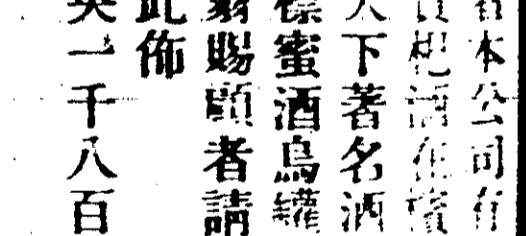 者本公司有
酒在
人下著名酒
標蜜酒烏罐
賜顧者請
此佈
英一千八百